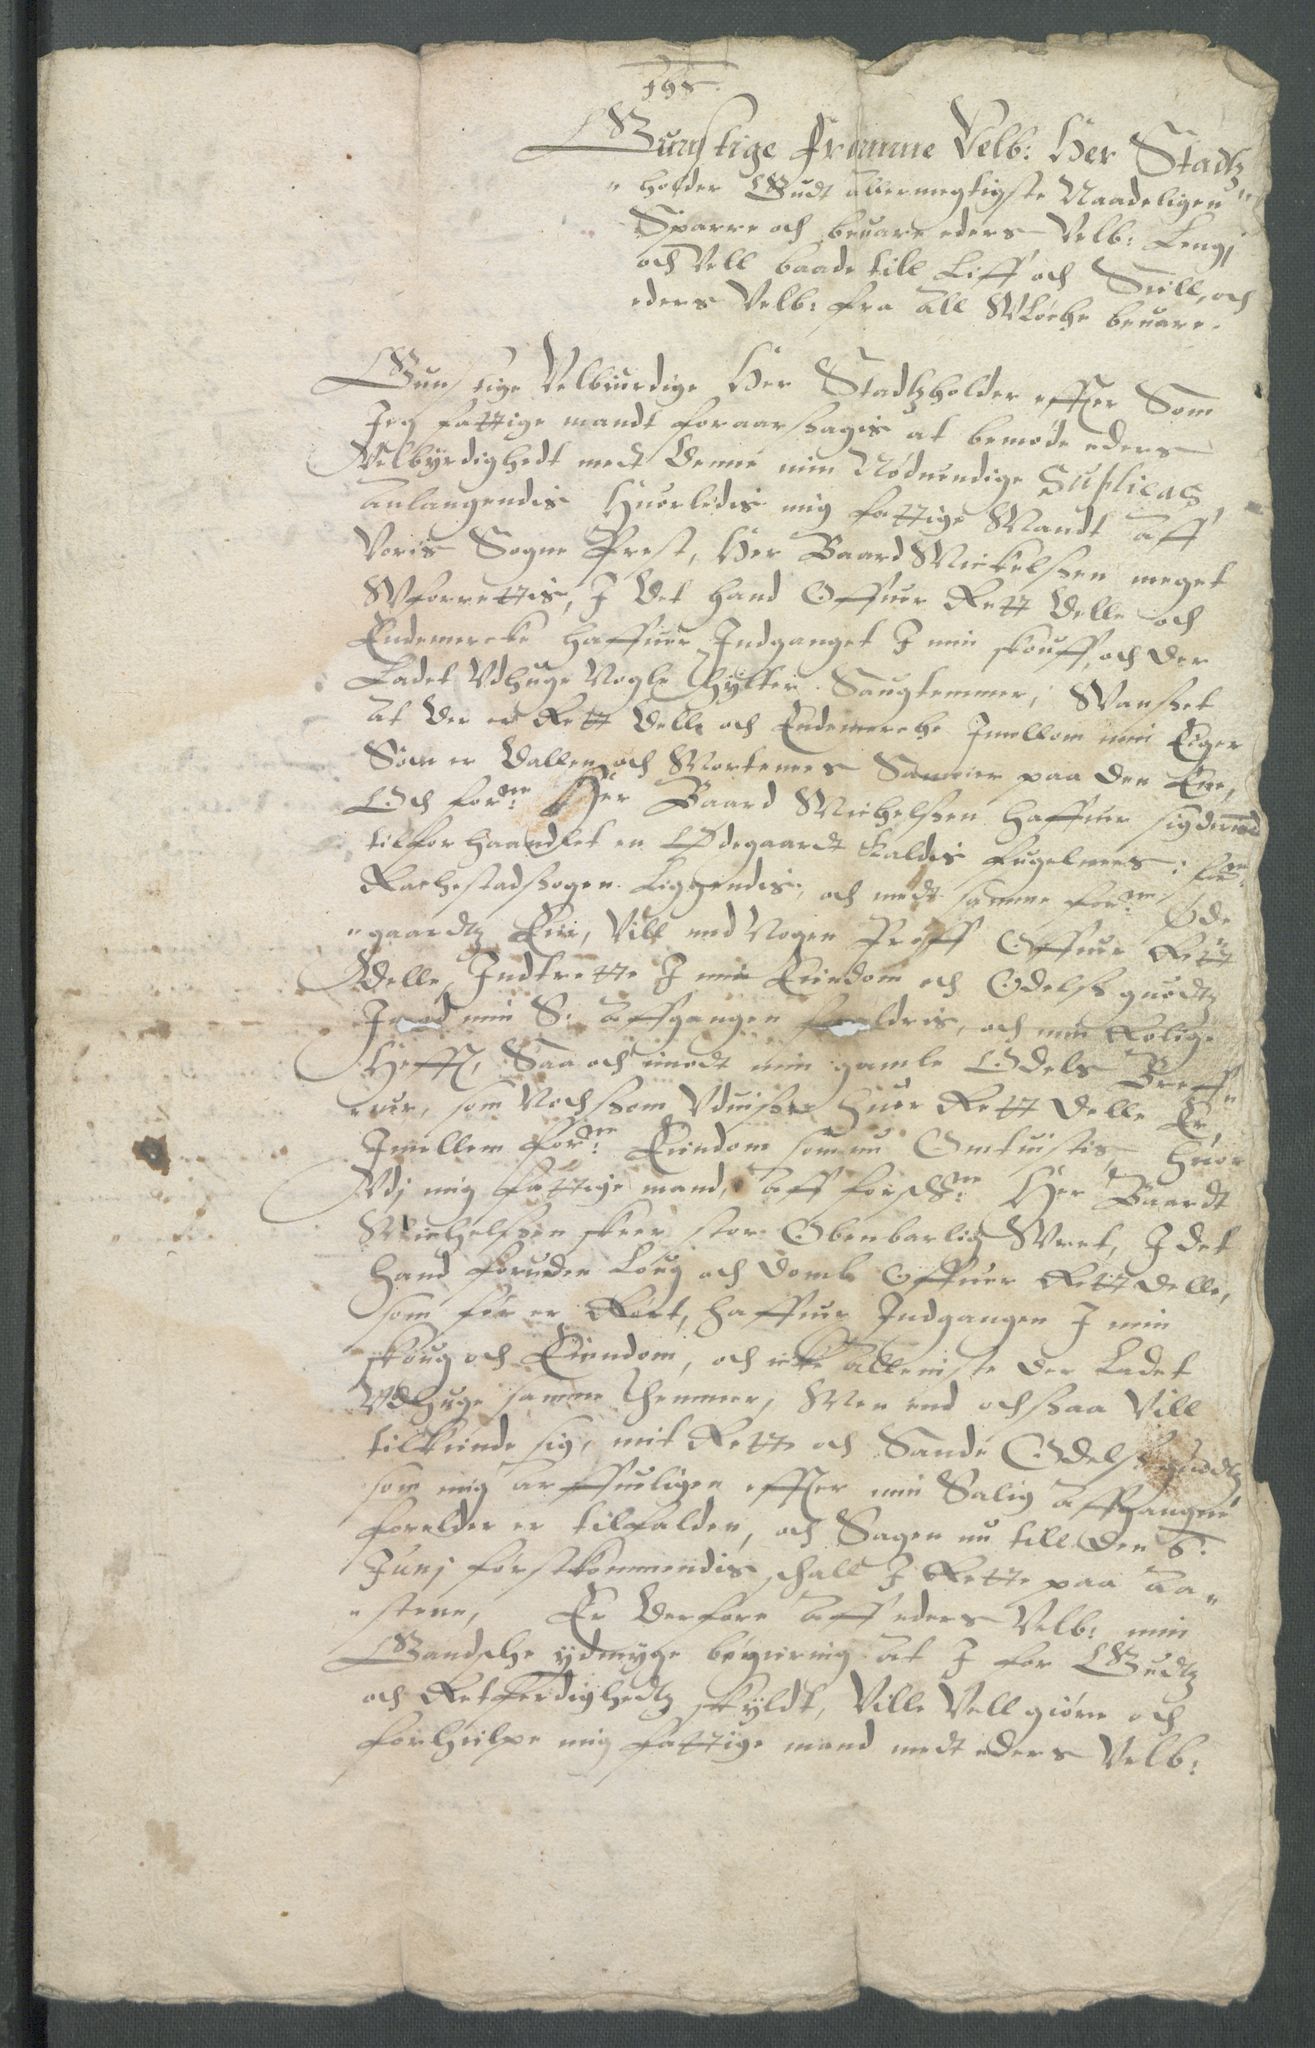 Ihs.
Gunstige Fromme Velb: Her Stadtz
"holder Gudt allermegtigste Naadeligen
Sparre och beuare eders Velb: Lengj
och Vell baade till Liff och Siell, och
eders Velb: fra all Wløche beuare.
Gunstige Velbiurdige Her Stadtzholder effter Som
Jeg fattige mandt foraarsagis at bemøde eders
Velbyrdighedt medt denne min Nøduendige Suplicas
anlangendis Huorledis mig fattige Mandt aff
Voris Sogne Prest, Her Baard Mickelssen meget
Wforrettis, I det hand Offuer Rett delle och
Endemercke haffuer Indganget I min skouff, och der
Ladet Vdhuge Nogle Tylter Saugtemmer, Wanseet
at der er Rett delle och Endemerche Imellom min Eiger
Som er Dallen och Mortenes Sameier paa den Ene,
Och forne: Her Baard Michelssen haffuer sig dernd
tilforhaandlet en Ødegaardt kaldis Fugelnees i forne:
Rachestadsogen Liggendis, och medt samme forne: Øde
"gaardtz Eie, Vill med Nogen Preff Offuer Rett
Delle Indtrette I min Eiendom och Odelss guodtz
Imod min S: affgangen foreldris, och min Rolige
Hefft, Saa och imodt min gamle Odels Breff"
"uer, som Nochsom Vduisser huor Rett delle Er
Imellem forne: Eiendom som nu Omtuistis, huor
Vdj mig fattige mand, aff forschne: Her Baardt
Michelssen skeer stor Obenbarlig Wret, I det
hand foruden Loug och domb Offuer Rett delle,
som før er Rørt, haffuer Indgangen I min
skoug och Eiendom, och icke alleniste der Ladet
Vdhuge samme Themmer, Men end ochsaa Vill
tilkiende sig, mit Rette och Sande Odelss guodtz
som mig arffueligen effter min Salig affgangne
forelder er tilfalden, och Sagen nu till den 6.
Junj førstkommendis schall I Rette paa aa"
"stene, Er derfore aff eders Velb: min
Gandsche ydmyge begiering at I for Gudtz
och Retferdighedtz skyldt, Ville Vell giøre och
forhielpe mig fattige mand medt eders Velb: